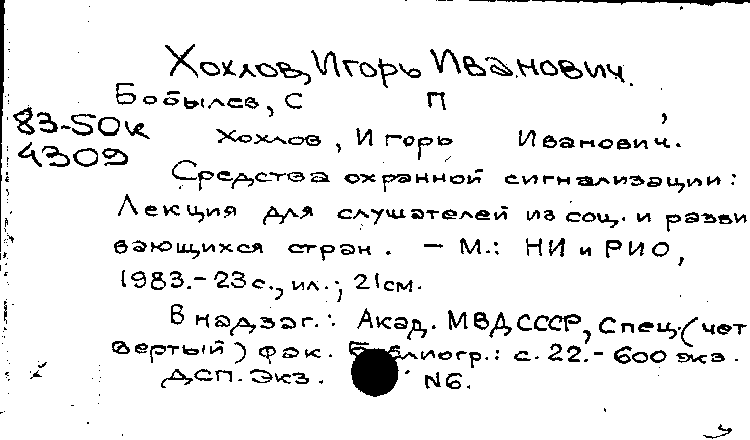 Хохлов, Игорь Иванович.
Бобылев, С П ,
83-5ОК
4309
Хохлов, Игорь Иванович.
Средства охранной сигнализации:
Лекция для слушателей из соц. и разви
вающихся стран. – М.: НИ и РИО,
1983.- 23 с., ил.; 21см.
В надзаг.: Акад. МВД СССР, Спец. (чет
вертый) фак. Библиогр.: с. 22.- 600 экз.
ДСП. Экз. N6.